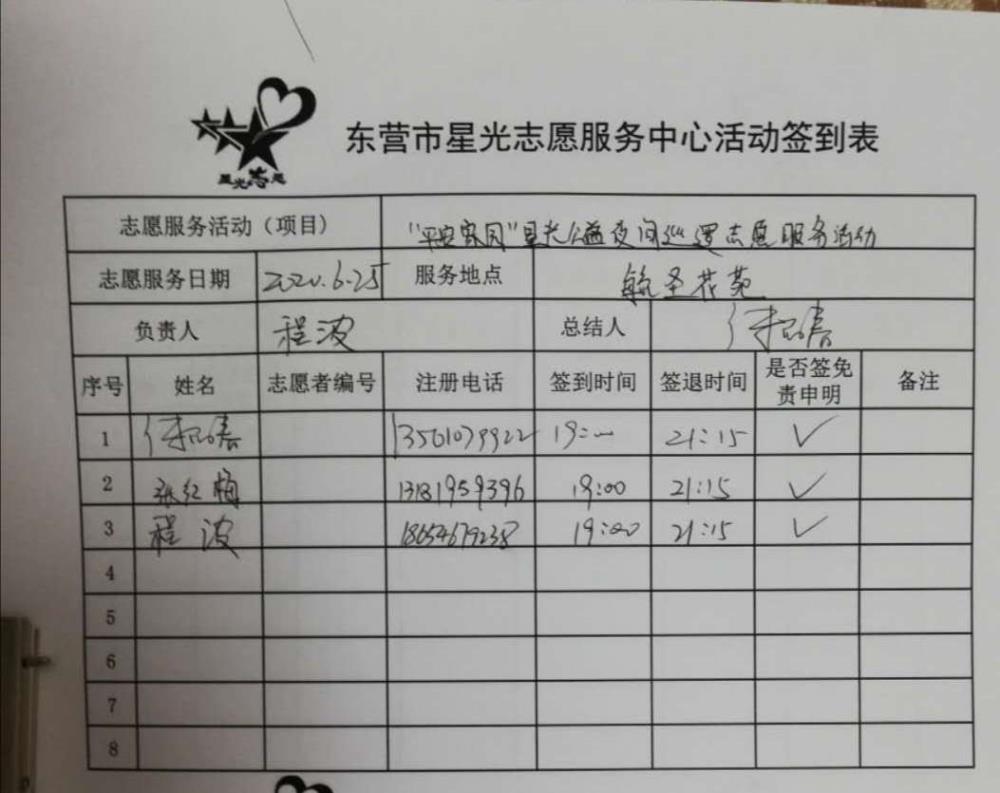 星光志愿
东营市星光志愿服务中心活动签到表
志愿服务活动（项目） "平安家园"星光公益夜间巡逻志愿服务活动
志愿服务日期 2020.6.25 服务地点 毓圣花苑
负责人 程波 总结人
序号 姓名 志愿者编号 注册电话 签到时间 签退时间 是否签免责申明 备注
1 13561079922 19:00 21:15 ✓
2 张红梅 13181959396 19:00 21:15 ✓
3 程波 18654679238 19:00 21:15 ✓
4
5
6
7
8